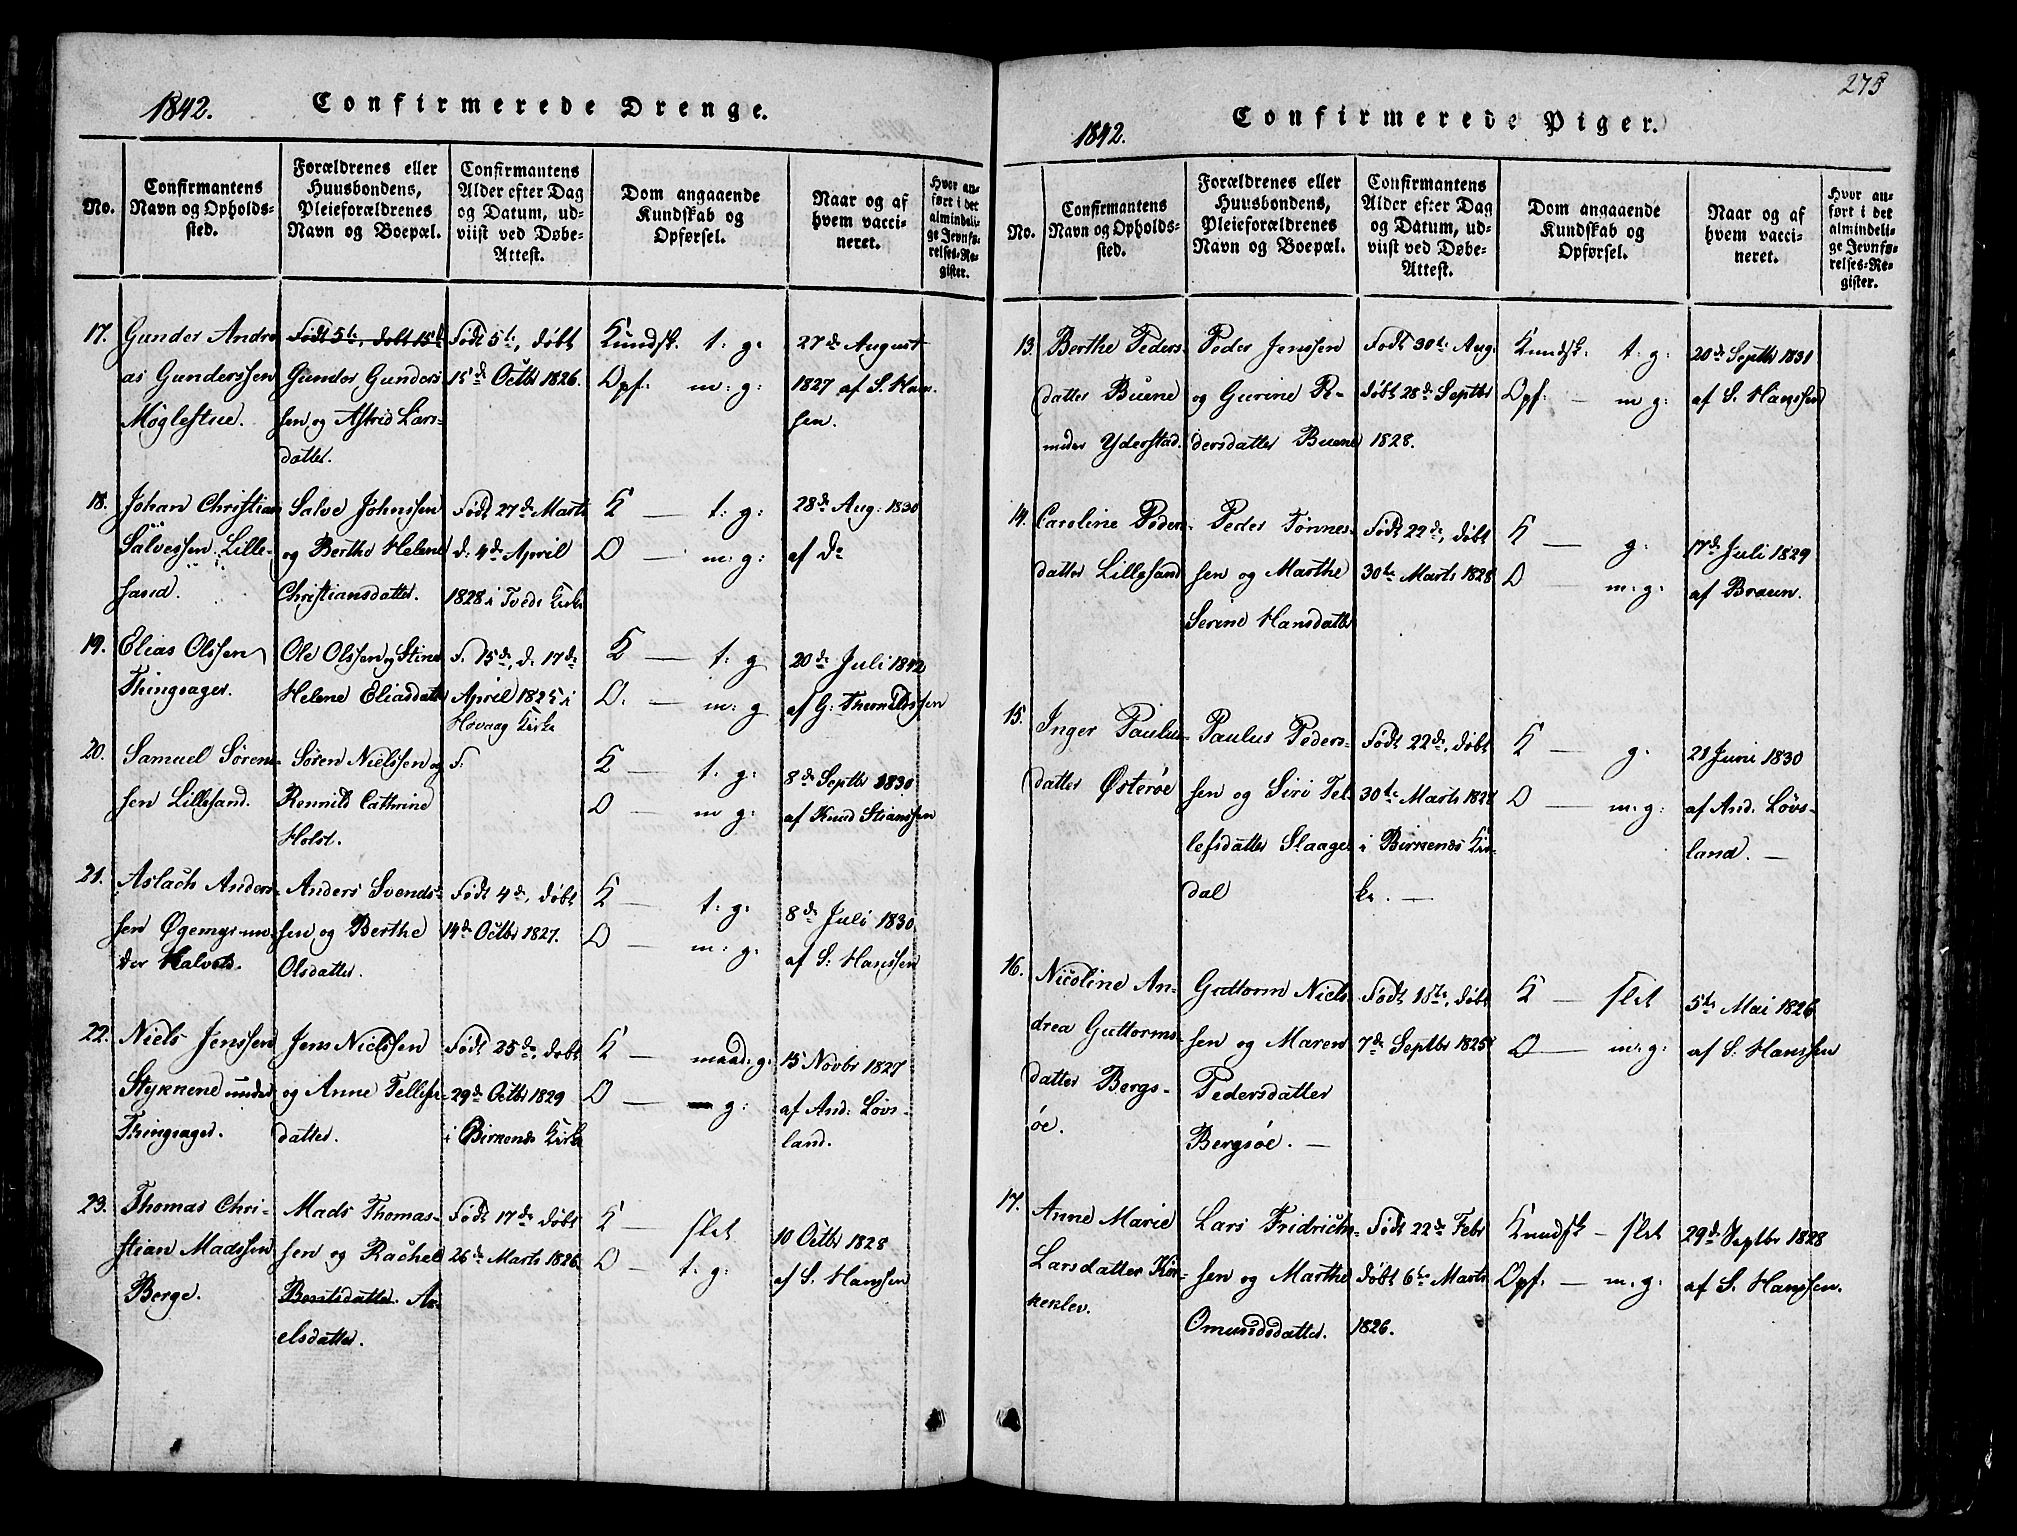 1842. Confirmerede Drenge.
No.
Confirmantens
Navn og Opholds-
sted.
Forældrenes eller
Huusbondens,
Pleieforældrenes
Navn og Boepæl.
Confirmantens
Alder efter Dag
og Datum, ud-
viist ved Døbe-
Attest.
Dom angaaende
Kundskab og
Opførsel.
Naar og af
hvem vacci-
neret.
Hvor an-
ført i det
almindeli-
ge Jevnfø-
relses-Re-
gister.
17.
Gunder Andre
as Gunderssen
Møglestue.
Født 5te, døbt 15de
Gunder Gunders
sen og Astrid Lars-
datter.
Født 5te, døbt
15de Octbr 1826.
Kundsk. t: g:
Opf: m: g:
27de August
1827 af S. Han
sen.
18.
Johan Christian
Salvessen Lille-
sand.
Salve Johnssen
og Berthe Helene
Christiansdatter.
Født 27de Marts
d. 4de April
1828 i Tvede Kirke
K — t: g:
O — m: g:
28de Aug: 1830
af Do
19.
Elias Olssen
Thingsager.
Ole Olssen og Stine
Helene Eliasdatter
F. 15de, d. 17de
April 1825 i
Høvaag Kirke
K — t: g
O. — m: g
20de Juli 1842
af G. Thorvildssen
20.
Samuel Sørens-
sen Lillesand.
Søren Nielssen og
Rennild Cathrine
Holst.
F.
K — t: g:
O — m g:
8de Septbr 1830
af Knud Stianssen
21.
Aslach Anders-
sen Øgemyr un
der Halvors.
Anders Svends-
sen og Berthe
Olsdatter.
Født 4de, døbt
14de Octbr 1827.
K — t: g:
O — m: g:
8de Juli 1830
af S: Hanssen
22.
Niels Jenssen
Stykkene under
Thingsager.
Jens Nielssen
og Anne Tellefs-
datter.
Født 25de, døbt
29de Octbr 1829
i Birkenes Kirke
K — maad: g:
O — g:
15 Novbr 1827
af And: Løvs-
land.
23.
Thomas Chri-
stian Madssen
Berge.
Mads Thomas-
sen og Rachel
Bentsdatter. Ax-
elsdatter.
Født 17de døbt
26de Marts 1826.
K — slet
O — t: g:
10 Octbr 1828
af S. Hanssen
275
1842. Confirmerede Piger.
No.
Confirmantens
Navn og Opholds-
sted.
Forældrenes eller
Huusbondens,
Pleieforældrenes
Navn og Boepæl.
Confirmantens
Alder efter Dag
og Datum, ud-
viist ved Døbe-
Attest.
Dom angaaende
Kundskab og
Opførsel.
Naar og af
hvem vacci-
neret.
Hvor an-
ført i det
almindeli-
ge Jevnfø-
relses-Re-
gister.
13.
Berthe Peders-
datter Buene
under Yderstad.
Peder Jenssen
og Gurine Pe-
dersdatter Buene
Født 30te Aug:
døbt 28de Septbr
1828.
Kundsk: t: g:
Opf: — m g:
20de Septbr 1831
af S. Hanssen
14.
Caroline Peders-
datter Lillesand
Peder Tønnes-
sen og Marthe
Serine Hansdatter
Født 22de, døbt
30te Marts 1828
K — g:
O — m: g:
17de Juli 1829
af Braun.
15.
Inger Paulus-
datter Østerøe
Paulus Peders-
sen og Siri Tel-
lefsdatter Slaage
dal
Født 22de, døbt
30te Marts 1828
i Birkenes Kir-
ke. —
K — g:
O — m: g:
21 Juni 1830
af And. Løvs-
land. —
16.
Nicoline An-
drea Guttorms-
datter Bergs-
øe.
Guttorm Niels-
sen og Maren
Pedersdatter
Bergsøe. —
Født 18te, døbt
7de Septbr 1825
K — slet
O — m: g:
5te Mai 1826
af S. Hanssen
17.
Anne Marie
Larsdatter Kor-
kenlev.
Lars Fridrich-
sen og Marthe
Omundsdatter.
Født 22de Febr
døbt 6te Marts
1826.
Kundsk — slet
Opf. — m: g:
29de Septbr 1828
af S. Hanssen.